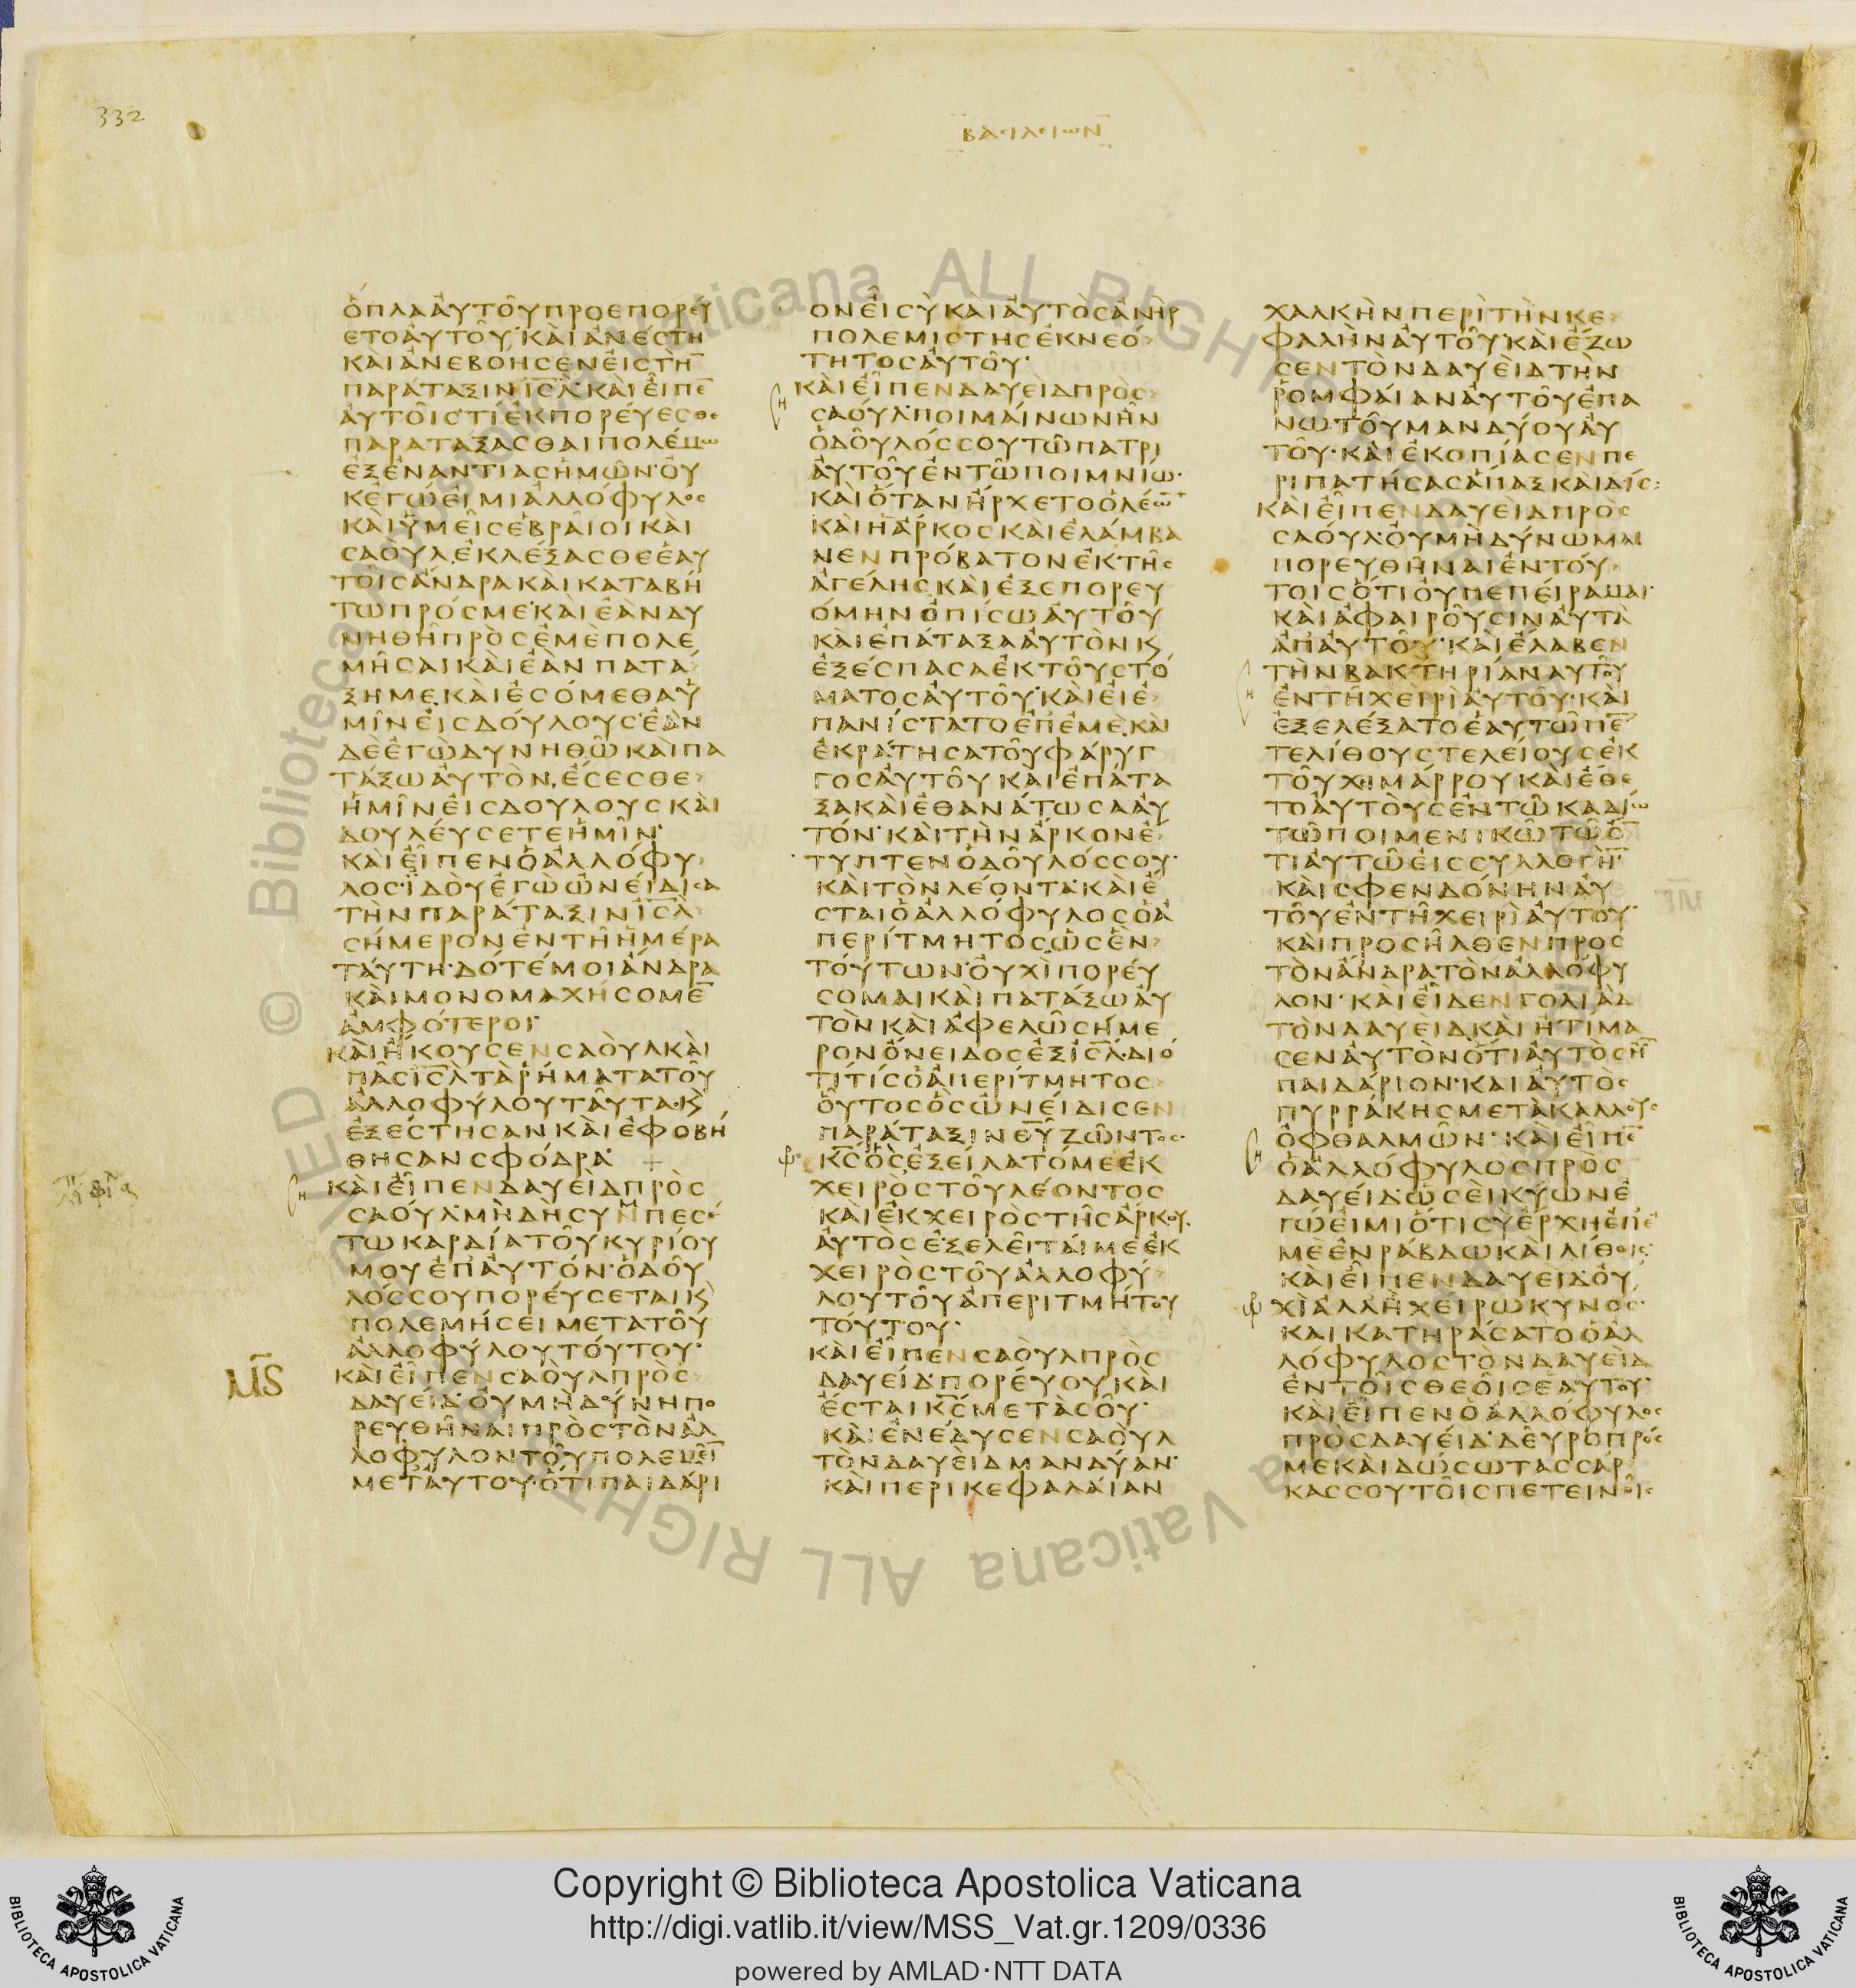 332
ΒΑΣΙΛΕΙΩΝ
ὅπλα ἀυτοῦ προεπορέυ
ετο ἀυτοῦ· κὰι ἀνέστη
κὰι ἀνεβόησεν ἐις τὴ̅
παράταξιν ι̅σ̅λ̅· κὰι ἐῖπε̅
ἀυτοῖς τί ἐκπορέυεσθε
παρατάξασθαι πολέμω
ἐξἐναντίας ἡμῶν· ὀυ
κ ἐγώ ἐιμι ἀλλόφυλος
κὰι ὑμεῖς ἐβραῖοι κὰι
σαὸυλ, ἐκλέξασθε ἑαυ
τοῖς ἄνδρα κὰι καταβή
τω πρός με· κὰι ἐὰν δυ
νηθῆ πρὸς ἐμὲ πολε
μῆσαι κὰι ἐὰν πατά
ξη με, κὰι ἐσόμεθα ὑ
μῖν ἐις δούλους· ἐὰν
δὲ ἐγὼ δυνηθῶ κὰι πα
τάξω ἀυτὸν, ἔσεσθε
ἡμῖν ἐις δούλους κὰι
δουλέυσετε ἡμῖν·
κὰι ἐῖπεν ὁ ἀλλόφυ
λος· ἰδὸυ ἐγὼ ὠνέιδισα
τὴν παράταξιν ι̅σ̅λ̅
σήμερον ἐν τῆ ἡμέρα
τάυτη· δότέ μοι ἄνδρα
κὰι μονομαχήσομε̅
ἀμφότεροι·
κὰι ἤκουσεν σαὸυλ κὰι
πᾶς ι̅σ̅λ̅ τὰ ῥήματα τοῦ
ἀλλοφύλου τάυτα· κ̀
ἐξέστησαν κὰι ἐφοβή
θησαν σφόδρα·
κὰι ἐῖπεν δαυεὶδ πρὸς
σαόυλ· μὴ δὴ συνπεσέ
τω καρδία τοῦ κυρίου
μου ἐπ ἀυτόν· ὁ δοῦ
λός σου πορέυσεται κ̀
πολεμήσει μετὰ τοῦ
ἀλλοφύλου τούτου·
μ̅ς̅
κὰι ἐῖπεν σαὸυλ πρὸς
δαυείδ· ὀυ μὴ δύνη πο
ρευθῆναι πρὸς τὸν ἀλ
λόφυλον τοῦ πολεμεῖ̅
μετ ἀυτοῦ· ὅτι παιδάρι
ον εῖ σὺ κὰι ἀυτὸς ἀνὴρ
πολεμιστὴς ἐκ νεό
τητος ἀυτοῦ·
κὰι ἐῖπεν δαυεὶδ πρὸς
σαόυλ· ποιμάινων ἦν
ὁ δοῦλός σου τῶ πατρὶ
ἀυτοῦ ἐν τῶ ποιμνίω·
κὰι ὅταν ἤρχετο ὁ λέω̅
κὰι ἡ ἄρκος κὰι ἐλάμβα
νεν πρόβατον ἐκ τῆς
ἀγέλης, κὰι ἐξεπορευ
όμην ὀπίσω ἀυτοῦ
κὰι ἐπάταξα ἀυτὸν κ̀
ἐξέσπασα ἐκ τοῦ στό
ματος ἀυτοῦ· κὰι ἐι ἐ
πανίστατο ἐπ ἐμὲ, κὰι
ἐκράτησα τοῦ φάρυγ
γος ἀυτοῦ κὰι ἐπάτα
ξα κὰι ἐθανάτωσα ἀυ
τόν· κὰι τὴν ἄρκον ἔ
τυπτεν ὁ δοῦλός σου·
κὰι τὸν λέοντα· κὰι ἔ
σται ὁ ἀλλόφυλος ὁ ἀ
περίτμητος, ὡς ἓν
τούτων· ὀυχὶ πορέυ
σομαι κὰι πατάξω ἀυ
τὸν κὰι ἀφελῶ σήμε
ρον ὄνειδος ἐξ ι̅σ̅λ̅· διό
τι τίς ὁ ἀπερίτμητος
ὅυτος ὃς ὠνέιδισεν
παράταξιν θ̅υ̅ ζῶντος·
κ̅ς̅ ὃς ἐξείλατό με ἐκ
χειρὸς τοῦ λέοντος
κὰι ἐκ χειρὸς τῆς ἄρκου,
ἀυτὸς ἐξελεῖτάι με ἐκ
χειρὸς τοῦ ἀλλοφύ
λου τοῦ ἀπεριτμήτου
τούτου·
κὰι ἐῖπεν σαὸυλ πρὸς
δαυείδ· πορέυου κὰι
ἔσται κ̅ς̅ μετὰ σοῦ·
κὰι ἐνέδυσεν σαὸυλ
τὸν δαυεὶδ μανδύαν·
κὰι περικεφαλάιαν
χαλκῆν περὶ τὴν κε
φαλὴν ἀυτοῦ· κὰι ἔζω
σεν τὸν δαυεὶδ τὴν
ῥομφάιαν ἀυτοῦ ἐπά
νω τοῦ μανδύου ἀυ
τοῦ· κὰι ἐκοπίασεν πε
ριπατήσας ἅπαξ κὰι δίς·
κὰι ἐῖπεν δαυεὶδ πρὸς
σαόυλ· ὀυ μὴ δύνωμαι
πορευθῆναι ἐν τού
τοις ὅτι ὀυ πεπέιραμαι·
κὰι ἀφαιροῦσιν ἀυτὰ
ἀπ ἀυτοῦ· κὰι ἔλαβεν
τὴν βακτηρίαν ἀυτοῦ
ἐν τῆ χειρὶ ἀυτοῦ· κὰι
ἐξελέξατο ἑαυτῶ πέ̅
τε λίθους τελέιους ἐκ
τοῦ χειμάρρου κὰι ἔθε
το ἀυτὸυς ἐν τῶ καδίω
τῶ ποιμενικῶ τῶ ὄ̅
τι ἀυτῶ ἐις συλλογὴ̅·
κὰι σφενδόνην ἀυ
τοῦ ἐν τῆ χειρὶ ἀυτοῦ·
κὰι προσῆλθεν πρὸς
τὸν ἄνδρα τὸν ἀλλόφυ
λον· κὰι ἐῖδεν γολιὰδ
τὸν δαυεὶδ, κὰι ἠτίμα
σεν ἀυτὸν ὅτι ἀυτὸς ἦ̅
παιδάριον· κὰι ἀυτὸς
πυρράκης μετὰ κάλλους
ὀφθαλμῶν· κὰι ἐῖπε̅
ὁ ἀλλόφυλος πρὸς
δαυείδ· ὡσὲι κύων ἐ
γώ ἐιμι ὅτι σὺ ἔρχη ἐπ ἐ
μὲ ἐν ῥάβδω κὰι λίθοις·
κὰι ἐῖπεν δαυείδ· ὀυ
χὶ ἀλλ ἢ χέιρω κυνός·
κὰι κατηράσατο ὁ ἀλ
λόφυλος τὸν δαυεὶδ
ἐν τοῖς θεοῖς ἑαυτοῦ·
κὰι ἐῖπεν ὁ ἀλλόφυλος
πρὸς δαυείδ· δεῦρο πρός
με κὰι δώσω τὰς σάρ
κας σου τοῖς πετεινοῖς
Copyright © Biblioteca Apostolica Vaticana
http://digi.vatlib.it/view/MSS_Vat.gr.1209/0336
powered by AMLAD·NTT DATA
Biblioteca Apostolica Vaticana ALL RIGHTS RESERVED ©
BIBLIOTECA APOSTOLICA VATICANA
BIBLIOTECA APOSTOLICA VATICANA